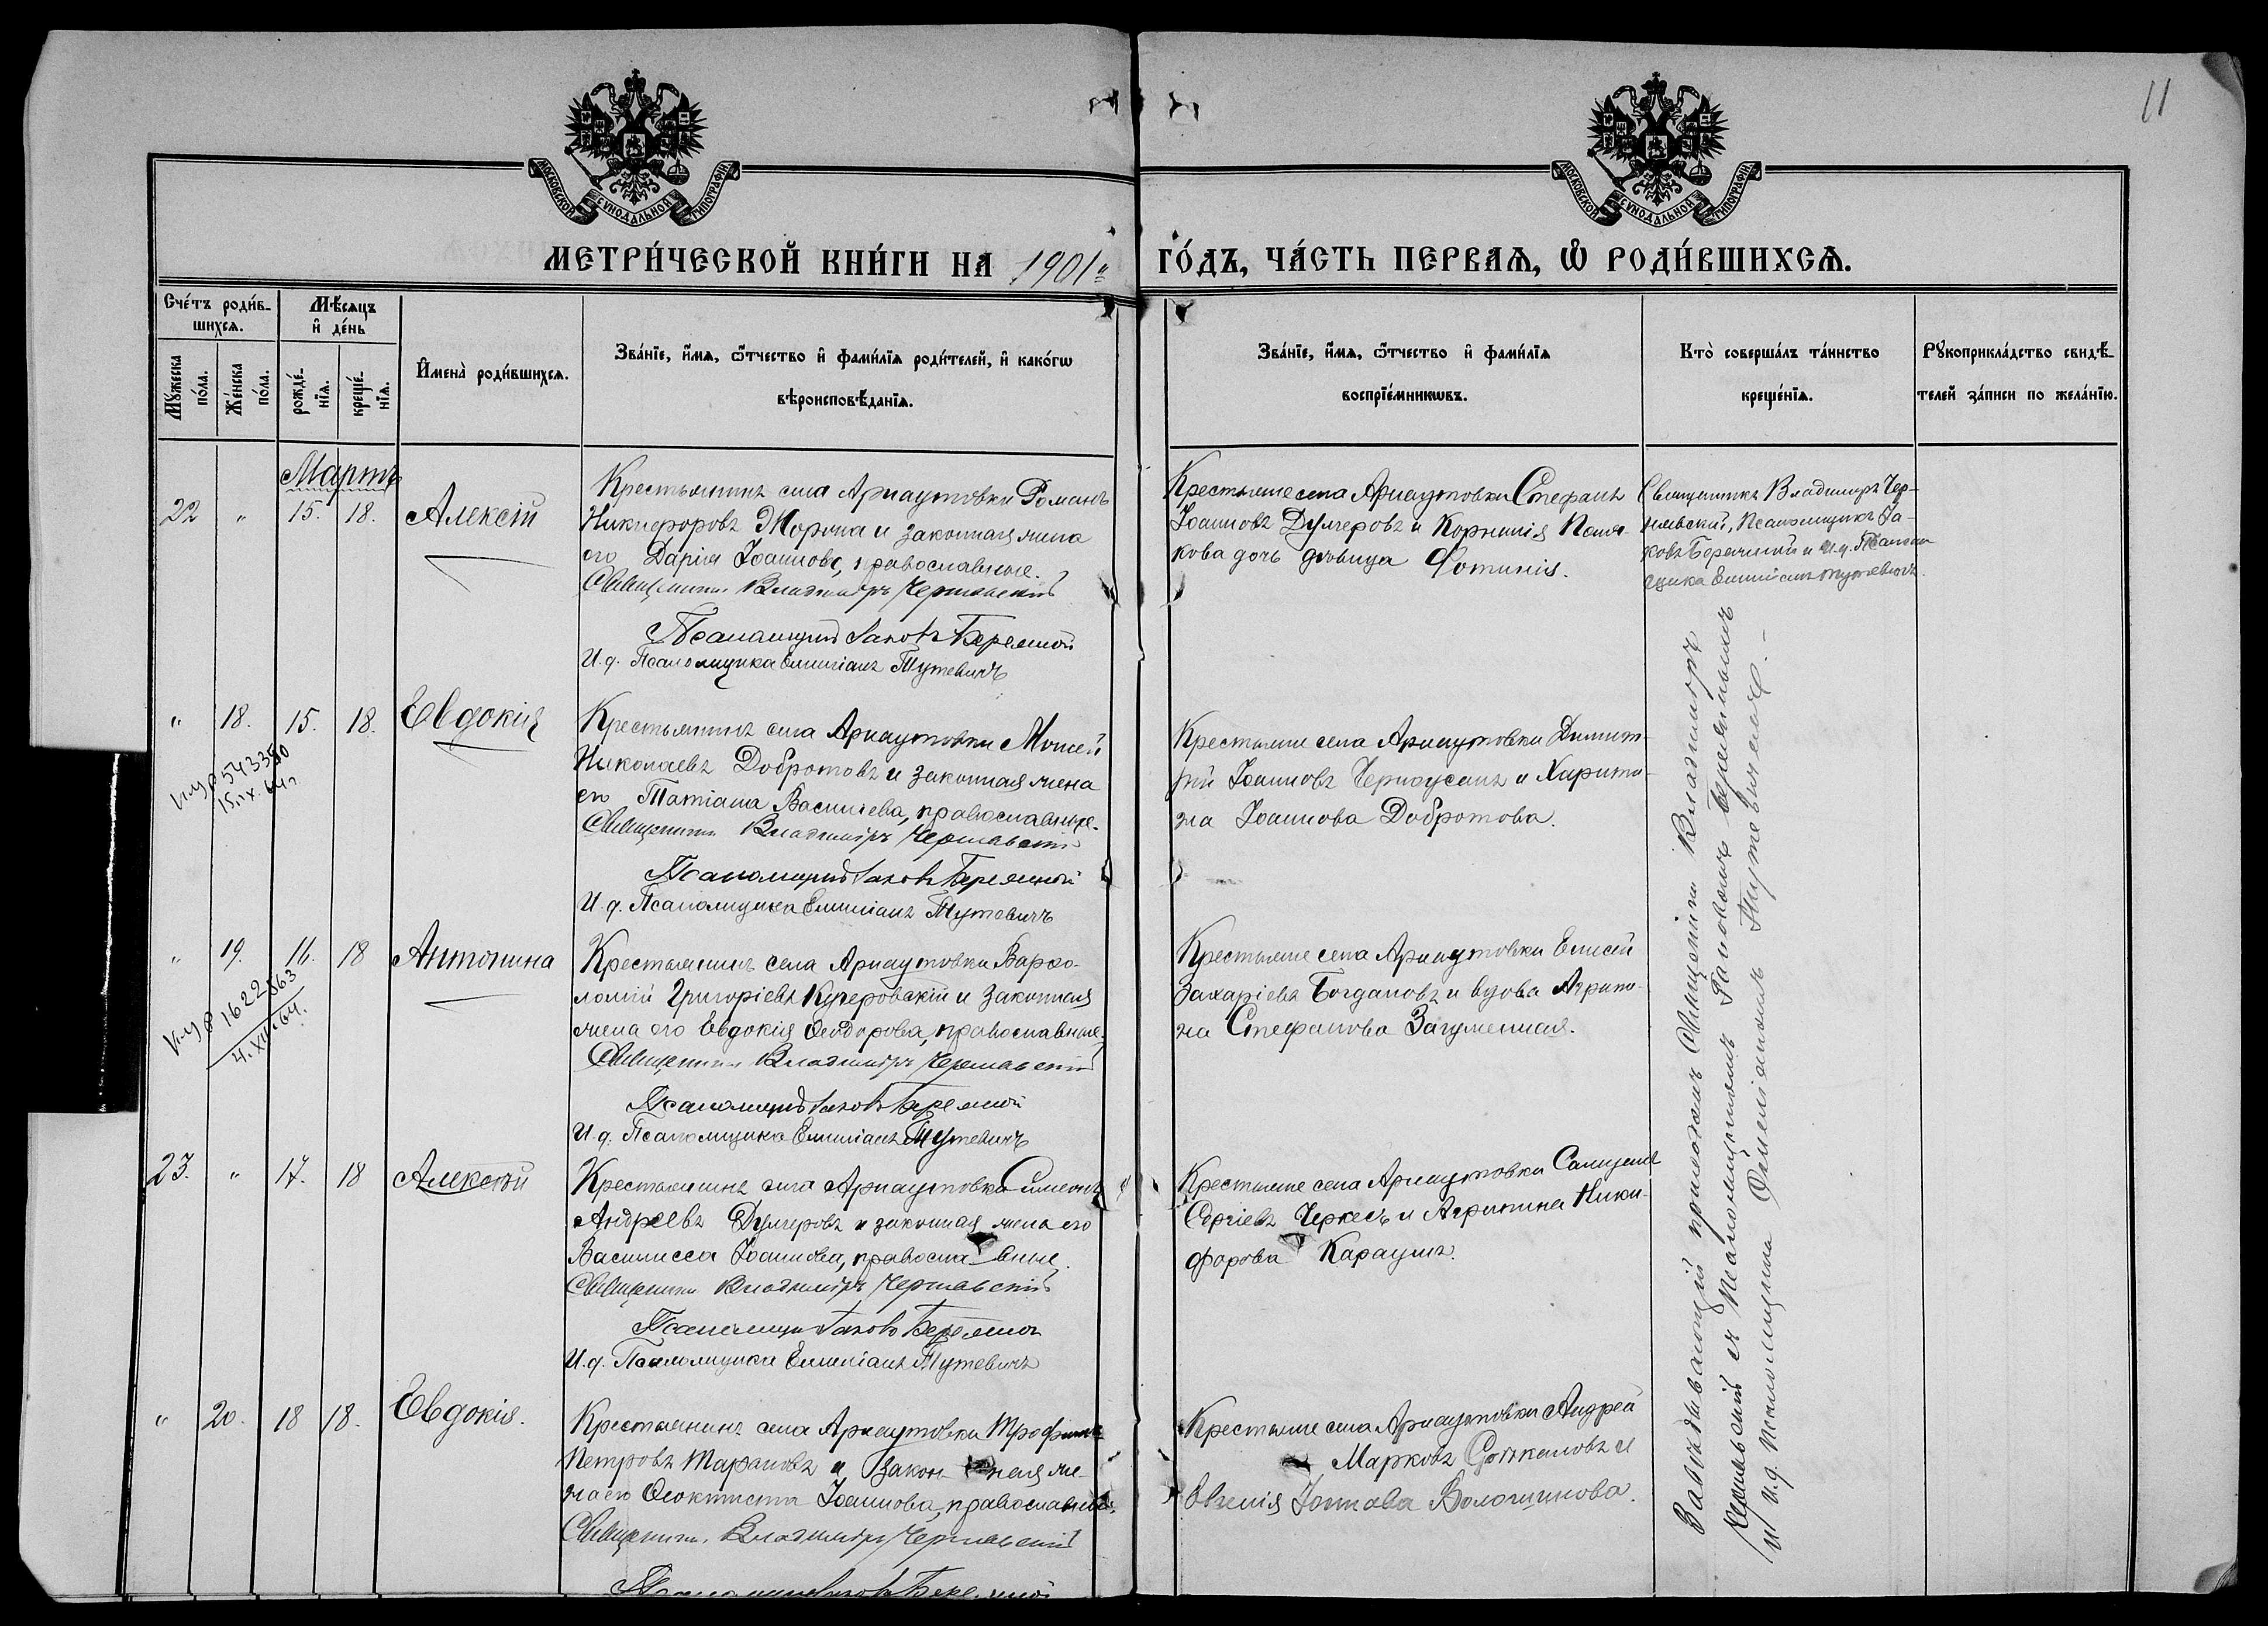 11
МОСКОВСКОЙ СѴНОДАЛЬНОЙ ТИПОГРАФІИ
МОСКОВСКОЙ СѴНОДАЛЬНОЙ ТИПОГРАФІИ
МЕТРИ́ЧЕСКОЙ КНИ́ГИ НА 1901й ГО́ДЪ, ЧА́СТЬ ПЕРВАЯ, Ѡ РОДИ́ВШИХСЯ.
Сче́тъ роди́в-
шихся.
Му́жеска по́ла.
Же́нска по́ла.
Мѣ́сяцъ
и де́нь
рожде́-
нія.
креще́-
нія.
Имена̀ роди́вшихся.
Зва́ніе, и́мя, ѻ́тчество и фами́лія роди́телей, и како́гѡ
вѣроисповѣ́данія.
Зва́ніе, и́мя, ѻ́тчество и фами́лія
воспріе́мникѡвъ.
Кто̀ соверша́лъ та́инство
креще́нія.
Рꙋкоприкла́дство свидѣ́-
телей за́писи по жела́нію.
Мартъ
22 " 15. 18. Алексій
Крестьянинъ села Арнаутовки Романъ
Никифоровъ Жоряна и законная жена
его Дарія Іоаннова, православные.
Священникъ Владиміръ Чернявскій
Псаломщикъ Іаковъ Бережной
И. д. Псаломщика Емиліанъ Тутевичъ
Крестьяне села Арнаутовки Стефанъ
Іоанновъ Дулгеровъ и Корнилія
кова дочь дѣвица Фотинія.
Священникъ Владиміръ Чер-
нявскій, Псаломщикъ Іа-
ковъ Бережный и И. д. Псалом
щика Емиліанъ Тутевичъ.
" 18. 15. 18. Евдокія
543350
15.IX.64г
Крестьянинъ села Арнаутовки Моисей
Николаевъ Добротовъ и законная жена
его Татіана Васильева, православные.
Священникъ Владиміръ Чернявскій
Псаломщикъ Іаковъ Бережной
И. д. Псаломщика Емиліанъ Тутевичъ
Крестьяне села Арнаутовки Димит-
рій Іоанновъ Черноусанъ и Харити-
на Іоаннова Добротова.
" 19. 16. 18 Антонина
1622863
4.XII.64.
Крестьянинъ села Арнаутовки Варѳо-
ломій Григоріевъ Кучеровскій и законная
жена его Евдокія Ѳеодорова, православные.
Священникъ Владиміръ Чернявскій
Псаломщикъ Іаковъ Бережной
И. д. Псаломщика Емиліанъ Тутевичъ
Крестьяне села Арнаутовки Елисей
Захаріевъ Богдановъ и вдова Агрипи-
на Стефанова Загуменная.
23. " 17. 18 Алексѣй
Крестьянинъ села Арнаутовки Симеонъ
Андреевъ Дулгеровъ и законная жена его
Василисса Іоаннова, православные.
Священникъ Владиміръ Чернявскій
Псаломщикъ Іаковъ Бережной
И. д. Псаломщика Емиліанъ Тутевичъ
Крестьяне села Арнаутовки Самуилъ
Сергіевъ Черкесъ и Агрипина Ники-
форова Караулъ.
" 20. 18 18. Евдокія.
Крестьянинъ села Арнаутовки Трофимъ
Петровъ Тарановъ и законная же-
на его Ѳеоктиста Іоаннова, православные.
Священникъ Владиміръ Чернявскій
Псаломщикъ Іаковъ Бережной
Крестьяне села Арнаутовки Андрей
Марковъ и
Евгенія Іоаннова Волошинова.
Завѣдывающій приходомъ Священникъ Владиміръ
Чернявскій съ Псаломщикомъ Іаковомъ Бережнымъ
и И. д. Псаломщика Емиліаномъ Тутевичемъ.